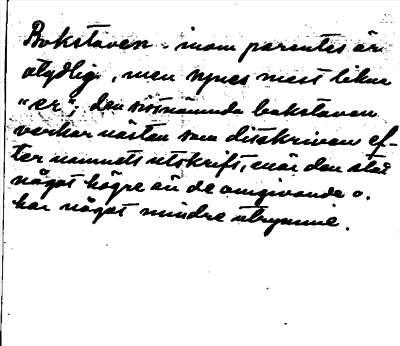 Bokstaven inom parentes är
otydlig, men synes mest likna
"er"; den sistnämnda bokstaven
verkar nästan som ditskriven ef-
ter namnets utskrift, enär den står
något högre än de omgivande o.
har något mindre utrymme.